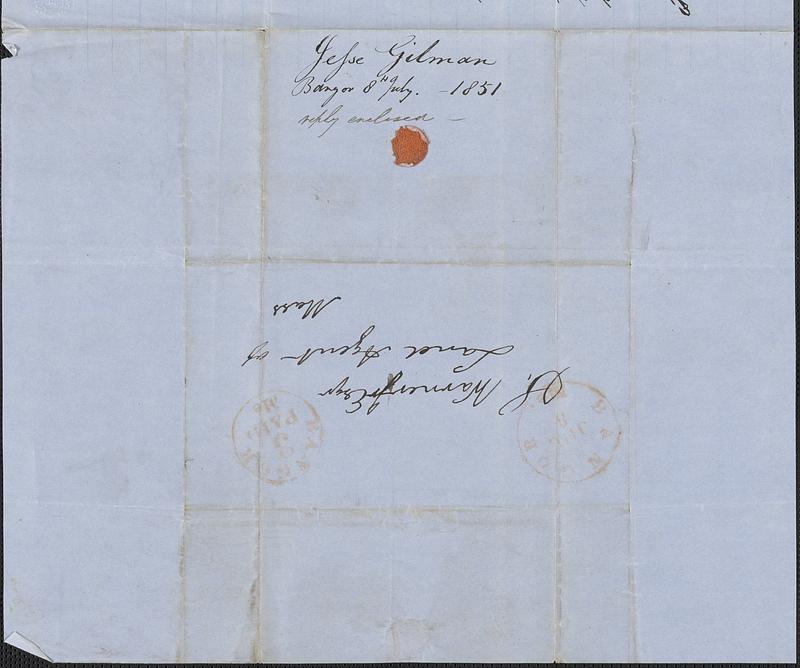 Jesse Gilman
Bangor 8th July. - 1851
reply enclosed -
S. Warner Jr Esqr
Land Agent of
Mass
BANGOR
JUL
8
BANGOR
3
PAID
Me